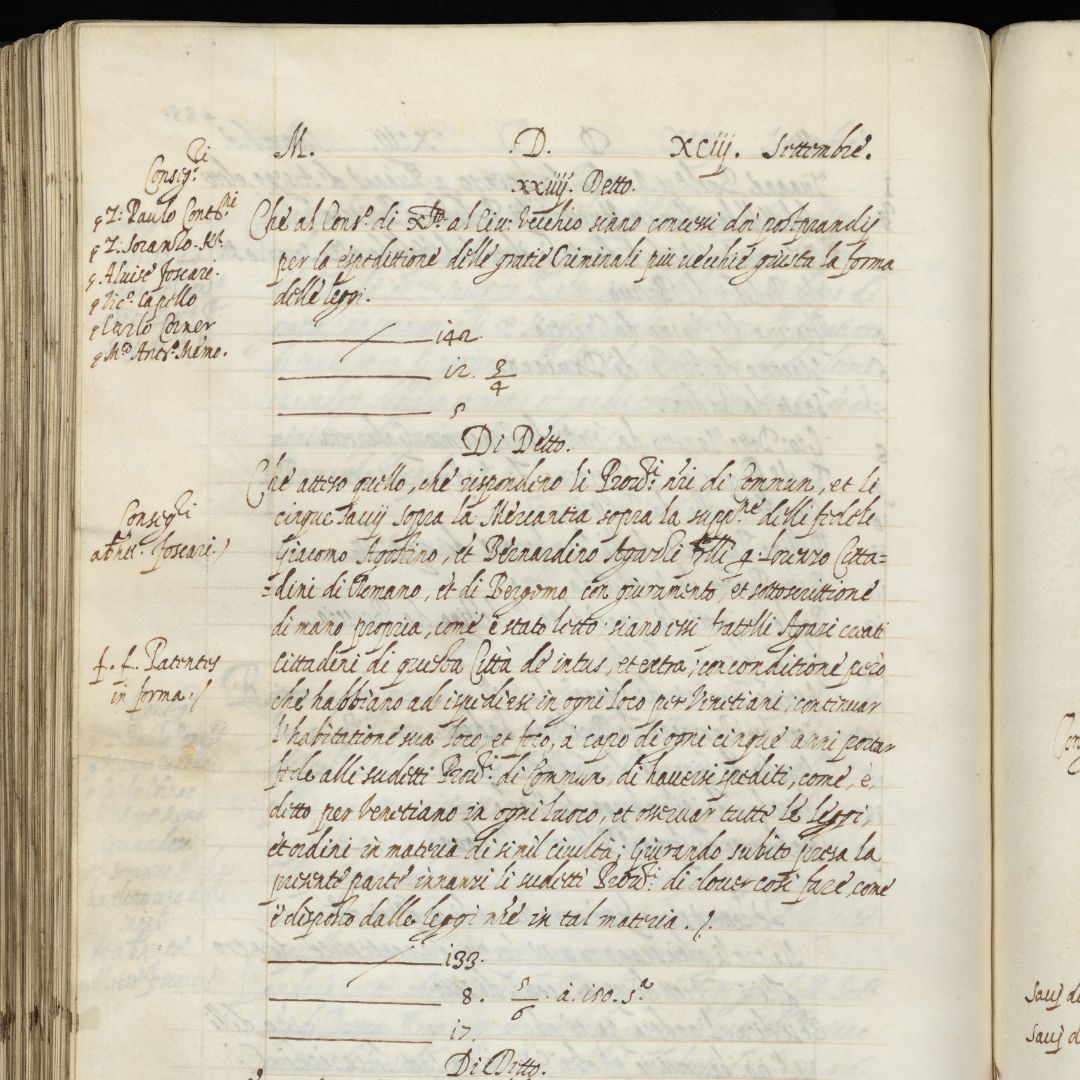 M. D. XCiij. Settembre.
Conseg.ri
q Z: Paulo Cont.ni
q Z. Soranzo. K.r
q. Aluise Foscari.
q Nic.o Capello
q Carlo Corner
q M. Ant.o Memo.
xxiiij. Detto.
Che al Cons.o di X.ta al Civ: Vecchio siano concessi doi postprandij
per la espeditione delle gratie Criminali più vecchie giusta la forma
delle leggi.
142.
12. 3/4
5
Di Detto.
Conseg.ri
Foscari. /
f. f. Patentes
in forma. /
Che atteso quello, che rispondeno li Prov.ri n'ri di Commun, et li
cinque Savij sopra la Mercantia sopra la supp.ne delli fedeli
Giacomo Agostino, et Bernardino Agazzi f'lli q. Lorenzo Citta=
=dini di Romano, et di Bergomo con giuramento, et sottoscrittione
di mano propria, come è stato letto: siano essi fratelli Agazi creati
cittadini di questa Città de intus, et extra; con conditione però
che habbiano ad ispedirse in ogni loco per Venetiani; continuar
l'habitatione sua loco, et foco, à capo di ogni cinque anni portar
fede alli sudetti Prov.ri di Commun, di haversi spediti, come, è,
ditto per Venetiano in ogni luoco, et osservar tutte le leggi,
et ordini in materia di simil civiltà; Giurando subito presa la
presente parte innanzi li sudetti Prov.ri di dover così fare, come
è disposto dalle leggi n're in tal materia. /.
133.
8. 5/6 . à. 150. 5.a
17.
Di Ditto.
Savij d
Savij d